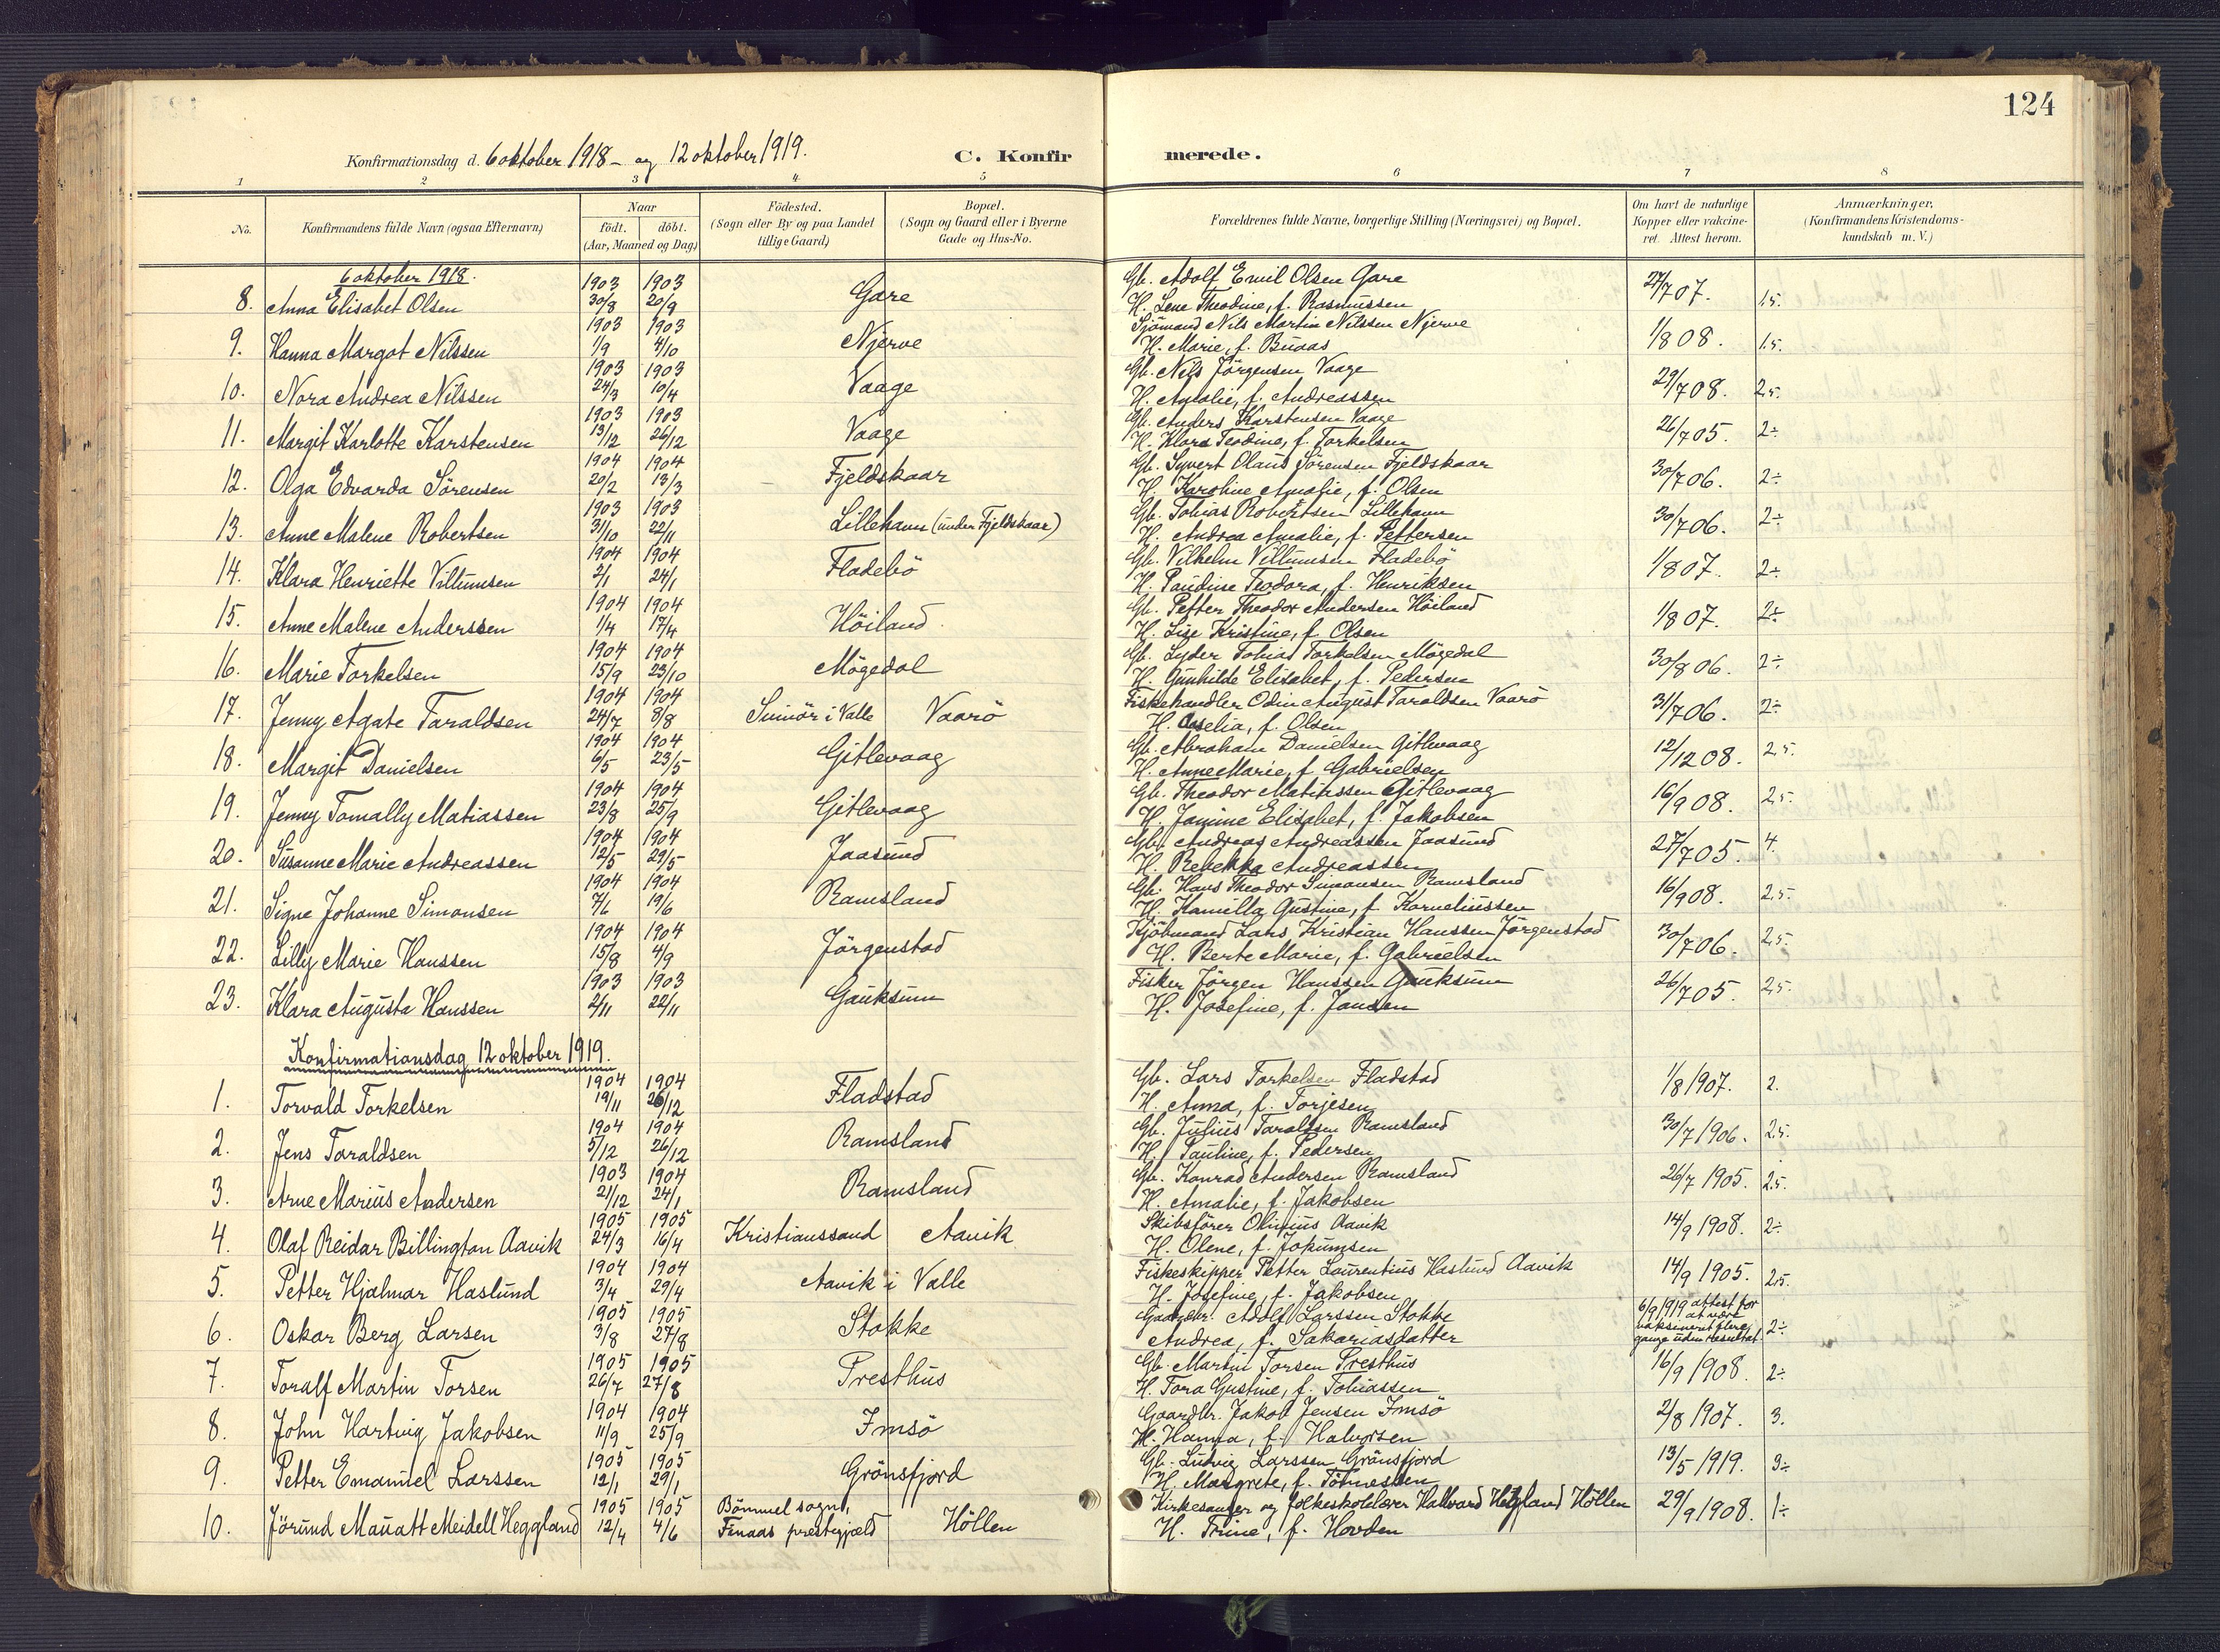 124
Konfirmationsdag d. 6 oktober 1918 – og 12 oktober 1919. C. Konfir merede.
1 2 3 4 5 6 7 8
No. Konfirmandens fulde Navn (ogsaa Efternavn) Naar født. døbt. (Aar, Maaned og Dag) Fødested. (Sogn eller By og paa Landet tillige Gaard) Bopæl. (Sogn og Gaard eller i Byerne Gade og Hus-No. Forældrenes fulde Navne, borgerlige Stilling (Næringsvei) og Bopæl. Om havt de naturlige Kopper eller vakcineret. Attest herom. Anmærkninger. (Konfirmandens Kristendomskundskab m. V.)
6 oktober 1918.
8. Anna Elisabet Olsen 1903 30/8 1903 20/9 Gare Gb. Adolf Emil Olsen Gare 27/7 07. 1.5.
H. Lene Theodine, f. Rasmussen
9. Hanna Margot Nilssen 1903 1/9 1903 4/10 Njerve Sjömand Nils Martin Nilssen Njerve 1/8 08. 1.5.
H. Marie, f. Buaas
10. Nora Andrea Nilssen 1903 24/3 1903 10/4 Vaage Gb. Nils Jörgensen Vaage 29/7 08. 2.5.
H. Amalie, f. Andreassen
11. Margit Karlotte Karstensen 1903 13/12 1903 26/12 Vaage Gb. Anders Karstensen Vaage 26/7 05. 2÷
H. Klara Teodine, f. Torkelsen
12. Olga Edvarda Sörensen 1904 20/2 1904 13/3 Fjeldskaar Gb. Syvert Olaus Sörensen Fjeldskaar 30/7 06. 2÷
H. Karoline Amalie, f. Olsen
13. Anne Malene Robertsen 1903 31/10 1903 22/11 Lillehavn (under Fjeldskaar) Gb. Tobias Robertsen Lillehavn 30/7 06. 2÷
H. Andrea Amalie, f. Pettersen
14. Klara Henriette Villumsen 1904 2/1 1904 24/1 Fladebö Gb. Vilhelm Villumsen Fladebö 1/8 07. 2÷
H. Paudine Teodora, f. Henriksen
15. Anne Malene Anderssen 1904 1/4 1904 17/4 Höiland Gb. Petter Theodor Andersen Höiland 1/8 07. 2÷
H. Lise Kristine, f. Olsen
16. Marie Torkelsen 1904 15/9 1904 23/10 Mögedal Gb. Lyder Tobias Torkelsen Mögedal 30/8 06. 2÷
H. Gunhilde Elisabet, f. Pedersen
17. Jenny Agate Taraldsen 1904 24/7 1904 8/8 Svinör i Valle Vaarö Fiskehandler Odin August Taraldsen Vaarö 31/7 06. 2÷
H. Oselia, f. Olsen
18. Margit Danielsen 1904 6/5 1904 23/5 Gitlevaag Gb. Abraham Danielsen Gitlevaag 12/12 08. 2.5.
H. Anne Marie, f. Gabrielsen
19. Jenny Tomally Matiassen 1904 23/8 1904 25/9 Gitlevaag Gb. Theodor Matiassen Gitlevaag 16/9 08. 2.5.
H. Janine Elisabet, f. Jakobsen
20. Susanne Marie Andreassen 1904 12/5 1904 29/5 Jaasund Gb. Andreas Andreassen Jaasund 27/7 05. 4.
H. Rebekka Andreassen
21. Signe Johanne Simonsen 1904 7/6 1904 19/6 Ramsland Gb. Hans Theodor Simonsen Ramsland 16/9 08. 2.5.
H. Kamilla Gustine, f. Korneliussen
22. Lilly Marie Hanssen 1904 15/8 1904 4/9 Jörgenstad Kjöbmand Lars Kristian Hanssen Jörgenstad 30/7 06. 2.5.
H. Berte Marie, f. Gabrielsen
23. Klara Augusta Hanssen 1903 2/11 1903 22/11 Gauksum Fisker Jörgen Hanssen Gauksum 26/7 05. 2.5.
H. Josefine, f. Jansen
Konfirmationsdag 12 oktober 1919.
1. Torvald Torkelsen 1904 19/11 1904 26/12 Fladstad Gb. Lars Torkelsen Fladstad 1/8 1907. 2.
H. Anna, f. Torjesen
2. Jens Taraldsen 1904 5/12 1904 26/12 Ramsland Gb. Julius Taraldsen Ramsland 30/7 1906. 2.5.
H. Pauline, f. Pedersen
3. Arne Marius Andersen 1903 21/12 1904 24/1 Ramsland Gb. Konrad Andersen Ramsland 26/7 1905. 2.5.
H. Amalie, f. Jakobsen
4. Olaf Reidar Billington Aavik 1905 24/3 1905 16/4 Kristianssand Aavik Skibsförer Olinius Aavik 14/9 1908. 2÷
H. Olene, f. Jokumsen
5. Petter Hjalmar Haslund 1904 3/4 1904 29/4 Aavik i Valle Fiskeskipper Petter Laurentius Haslund Aavik 14/9 1905. 2.5.
H. Josefine, f. Jakobsen
6. Oskar Berg Larsen 1905 3/8 1905 27/8 Stokke Gaardbr. Adolf Larssen Stokke 6/9 1919 attest for at være vaksineret flere gange uden resultat. 2÷
Andrea, f. Sakariasdatter
7. Toralf Martin Torsen 1905 26/7 1905 27/8 Presthus Gb. Martin Torsen Presthus 16/9 1908. 2÷
H. Tora Gustine, f. Tobiassen
8. John Hartvig Jakobsen 1904 11/9 1904 25/9 Imsö Gaardbr. Jakob Jensen Imsö 2/8 1907. 3.
H. Hanna, f. Halvorsen
9. Petter Emanuel Larssen 1905 12/1 1905 29/1 Grönsfjord Gb. Ludvig Larssen Grönsfjord 13/5 1919. 3÷
H. Margrete, f. Tönnessen
10. Jörund Mauatt Meidell Heggland 1905 12/4 1905 4/6 Bömmel sogn, Finaas prestegjæld Höllen Kirkesanger og folkeskolelærer Hallvard Heggland Höllen 29/9 1908. 1÷
H. Trine, f. Hovden